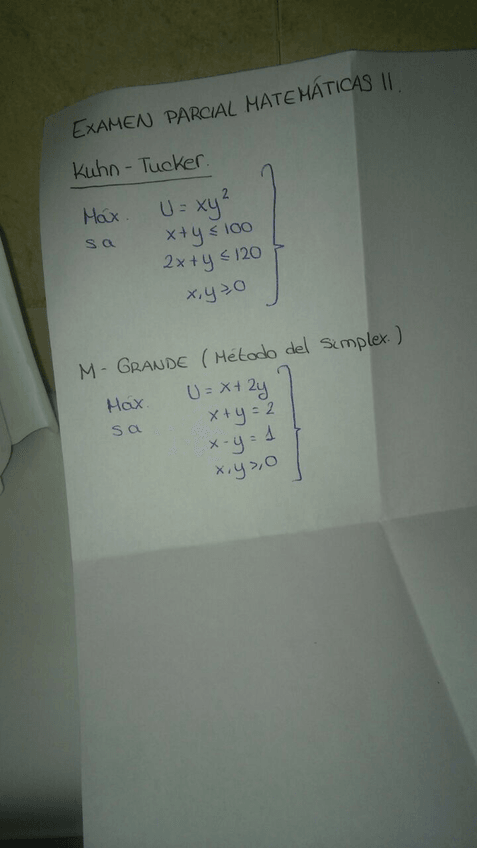 EXAMEN PARCIAL MATEMÁTICAS II.
Kuhn-Tucker.
Máx. U = xy²
sa x+y ≤ 100
2x+y ≤ 120
x,y ≥ 0
M-GRANDE (Método del Simplex.)
Máx. U = x+2y
sa x+y = 2
x-y = 1
x,y ≥ 0